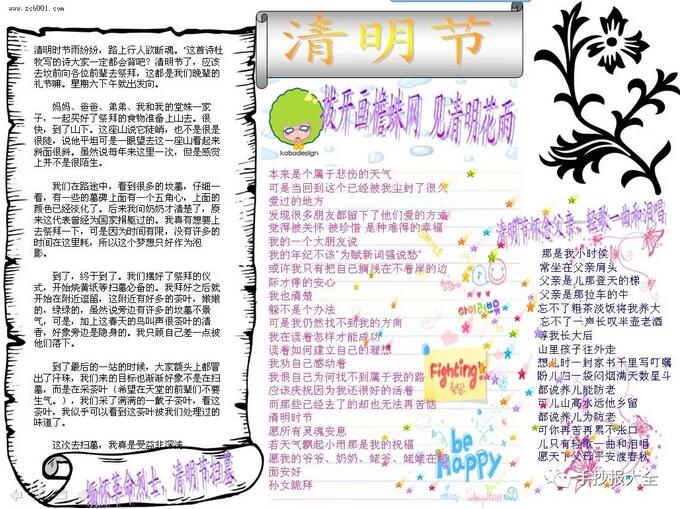 www.zcb001.com
清明时节雨纷纷，路上行人欲断魂。"这首诗杜
牧写的诗大家一定都会背吧？清明节了，应该
去坟前向各位前辈去祭拜，这都是我们晚辈的
礼节嘛。星期六下午就出发向。
妈妈、爸爸、弟弟、我和我的堂妹一家
子，一起买好了祭拜的食物准备上山去。很
快，到了山下。这座山说它陡峭，也不是很是
很陡，说他平坦可是一眼望去这一座山看起来
斜面很斜。虽然说每年来这里一次，但是感觉
上并不是很陌生。
我们在路途中，看到很多的坟墓，仔细一
看，有一些的墓碑上面有一个五角心，上面的
颜色已经淡化了。后来我问奶奶才清楚了，原
来这代表曾经为国家捐躯过的。我真有想要上
去祭拜一下，可是因为时间有限，没有许多的
时间在这里耗，所以这个梦想只好作为泡
影。
到了，终于到了。我们摆好了祭拜的仪
式，开始烧黄纸等扫墓必备的。我拜好之后就
开始在附近逗留，这附近有好多的茶叶，嫩嫩
的，绿绿的，虽然说旁边有许多的坟墓不景
气，可是，加上这春天的鸟叫声很茶叶的清
香，好象旁边是隐身的。我只顾自己差一点被
他们落下。
到了最后的一站的时候，大家额头上都冒
出了汗珠，我们来的目标也渐渐好象不是在扫
墓，而是在采茶叶（希望在天堂的前辈们不要
生气。），我们采了满满的一氅子茶叶，看这
茶叶，我似乎可以看到这茶叶被我们处理过的
味道了。
这次去扫墓，我真是受益非浅。
缅怀革命烈士、清明节扫墓
清明节
kabadesign
拨开画檐蛛网 见清明花雨
本来是个属于悲伤的天气
可是当回到这个已经被我尘封了很久
爱过的地方
发现很多朋友都留下了他们爱的方式
觉得被关怀 被珍惜 是种难得的幸福
我的一个大朋友说
我的年纪不该"为赋新词强说愁"
或许我只有把自己搁浅在不着岸的边
际才停的安心
我也清楚
躲不是个办法
可是我仍然找不到我的方向
我在读着怎样才能成功
读着如何建立自己的理想
我劝自己感动着
我恨自己为何找不到属于我的路
应该庆祝因为我还很好的活着
而那些已经去了的却也无法再苦恼
清明时节
愿所有灵魂安息
若天气飘起小雨那是我的祝福
愿我的爷爷、奶奶、姥爷、姥姥在那
面安好
孙女跳拜
아이러브유
Fighting!
be
Happy
清明节怀念父亲、轻歌一曲和泪唱
那是我小时侯
常坐在父亲肩头
父亲是儿那登天的梯
父亲是那拉车的牛
忘不了粗茶淡饭将我养大
忘不了一声长叹半壶老酒
等我长大后
山里孩子往外走
想儿时一封家书千里写叮嘱
盼儿归一袋闷烟满天数星斗
都说养儿能防老
可儿山高水远他乡留
都说养儿为防老
可你再苦再累不张口
儿只有轻歌一曲和泪唱
愿天下父母平安渡春秋
手抄报大全